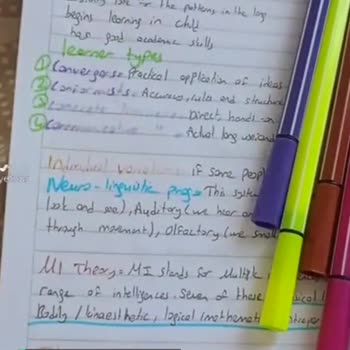 look for the patterns in the lang
begins learning in child
has good academic skills
learner types
① Convergers= Practical application of ideas
② Conformists= Accuracy, rule and structure
③ Concrete Direct hands on
④ Communicative = Actual lang
Individual variations if some peopl
Neuro-linguistic prog= This system
look and see), Auditory (we hear an
through movement), Olfactory (we sme
MI Theory= MI stands for Multiple
range of intelligences. Seven of these
Bodily / kinaesthetic, logical / mathemat